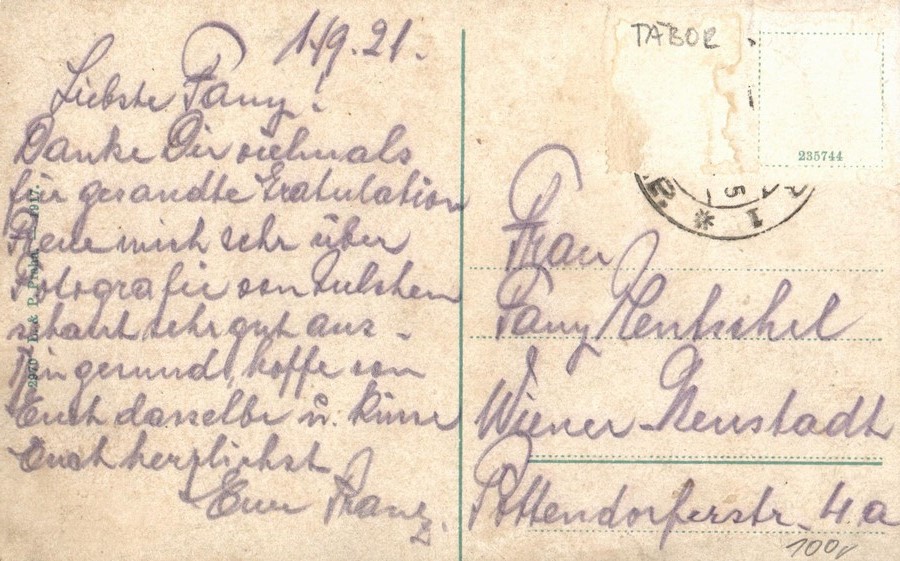 1./9.21.
Liebste Fany!
Danke Dir vielmals
für gesandte Gratulation
Freue mich sehr über
Fotografie von
schaut sehr gut aus.
Bin gesund, hoffe von
Euch dasselbe u. küsse
Euch herzlichst
Euer Franz
2970 B. & P. Praha 1917.
TABOR
235744
Frau
Fany Hentschel
Wiener-Neustadt
Pottendorferstr. 4a
100,-